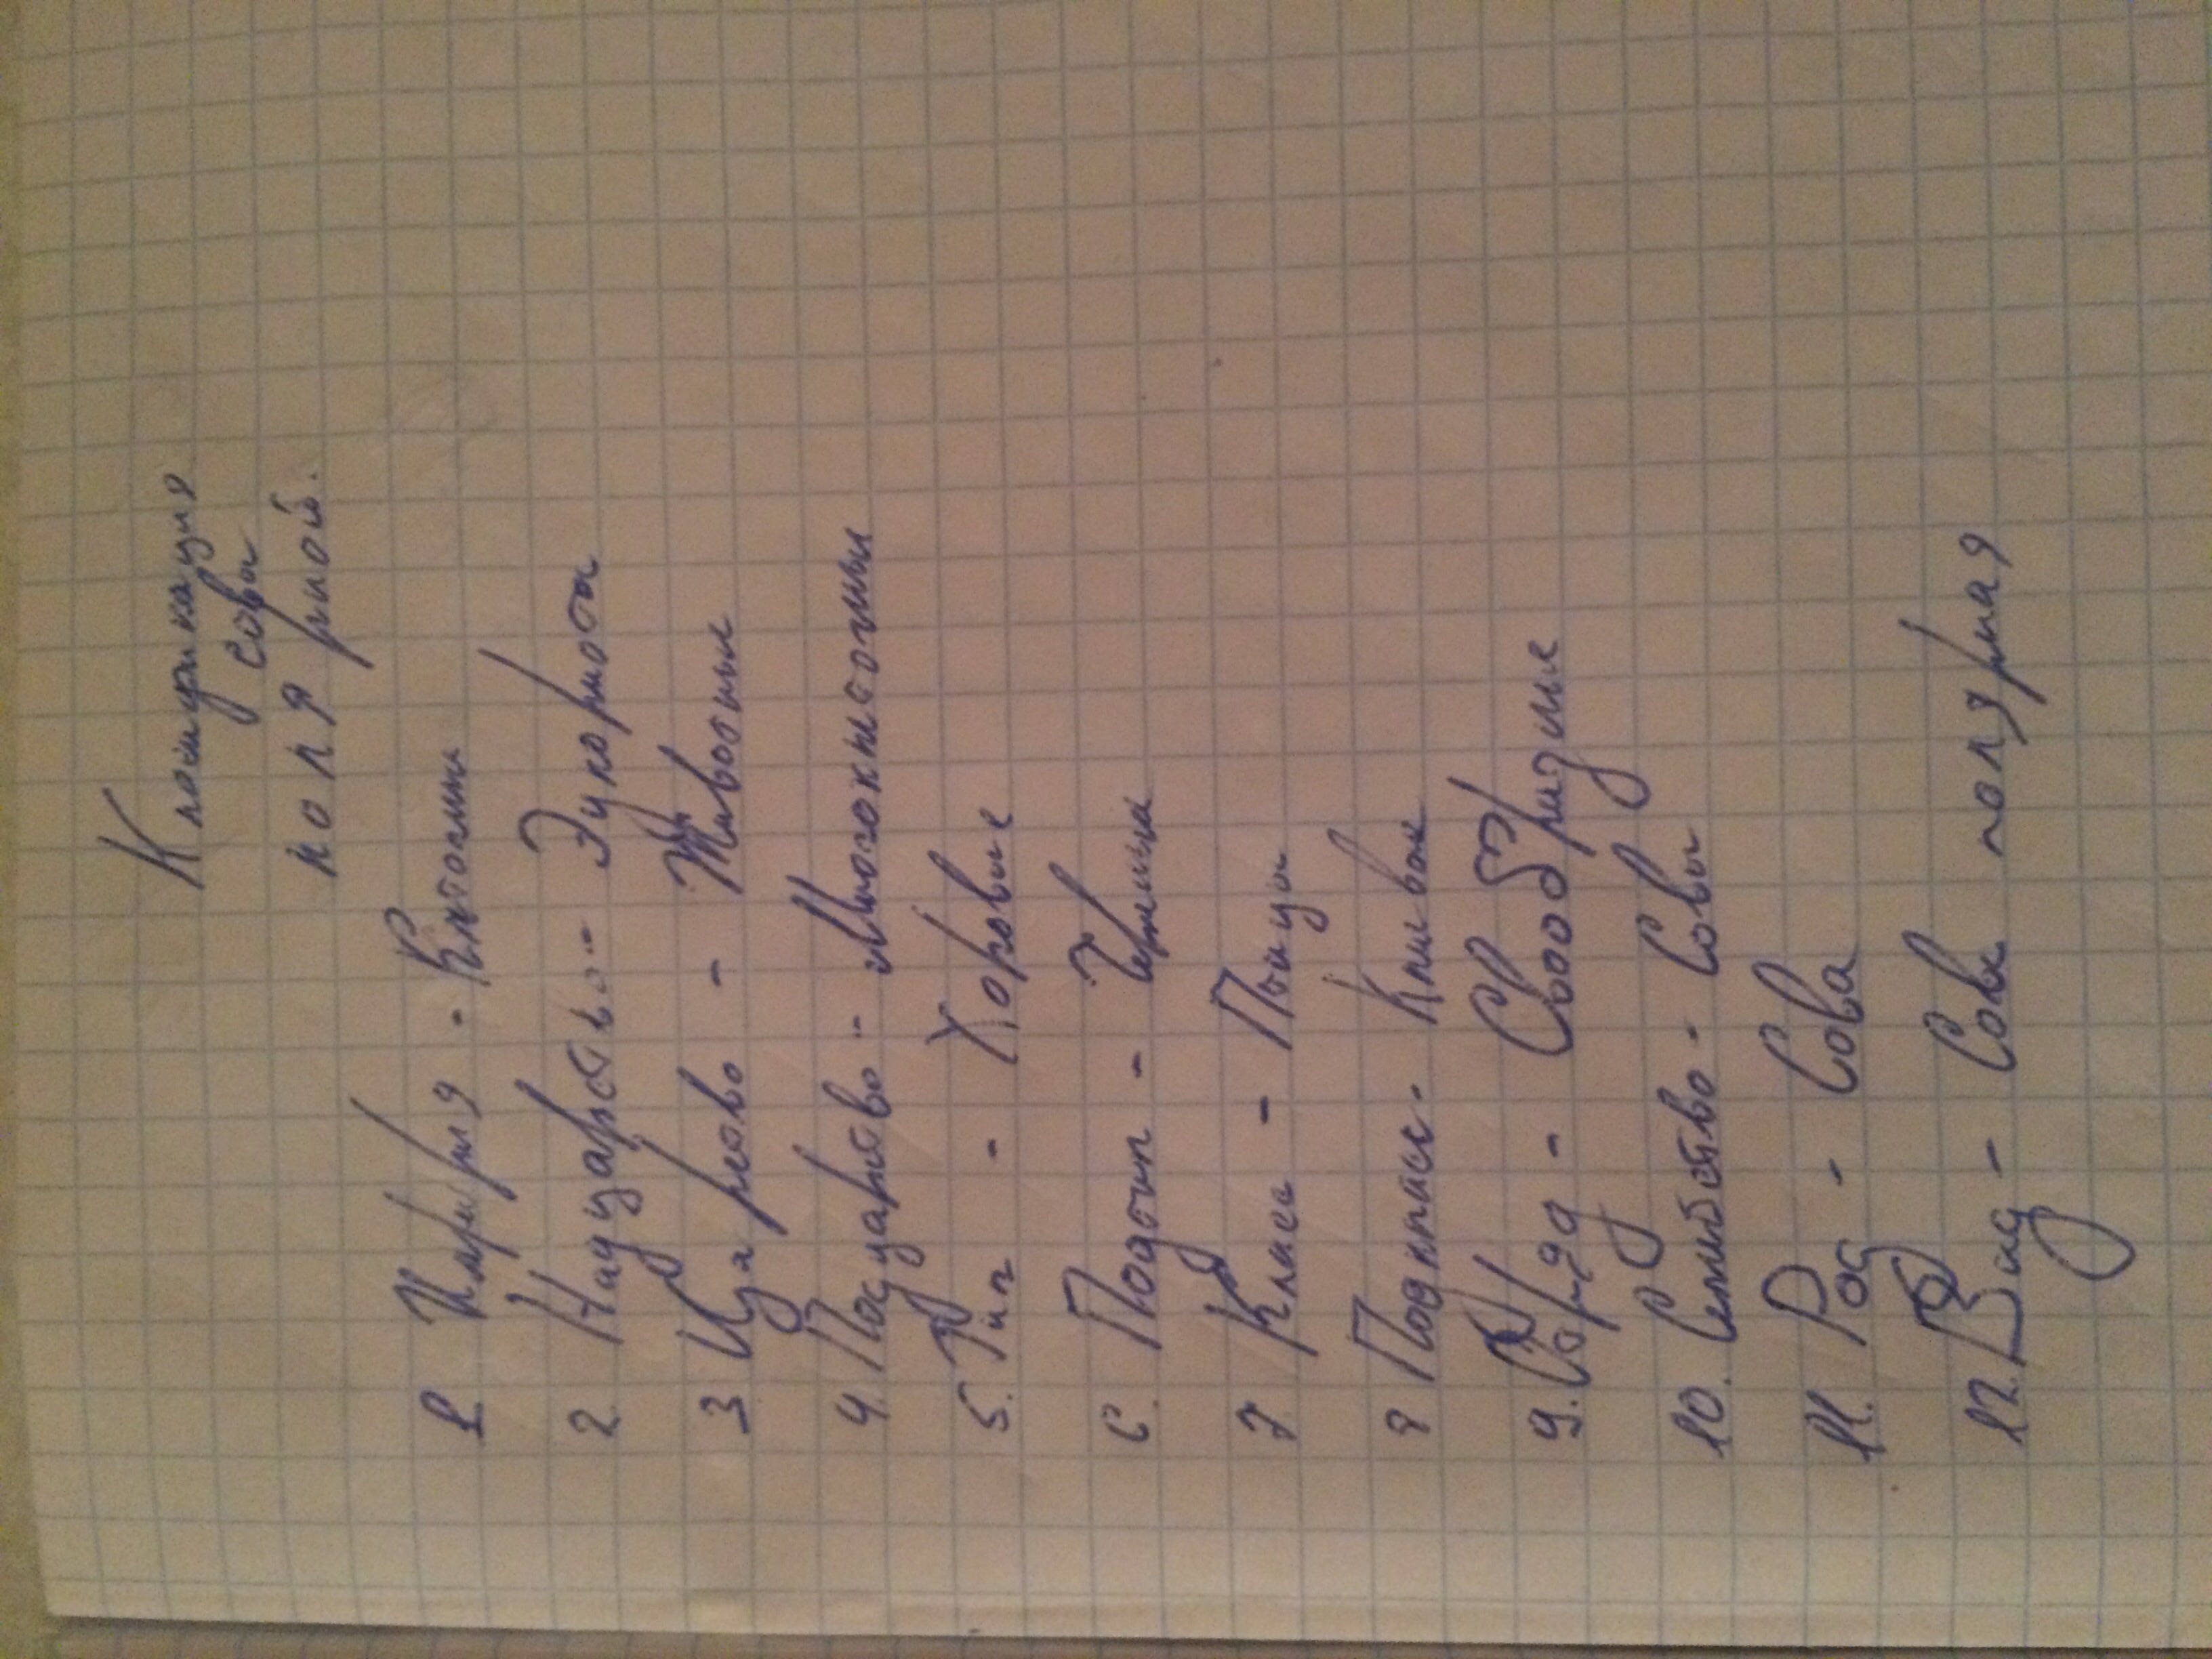 Класификация
совы
полярной.
1 Империя - Клеточные
2 Надцарство - Эукориота
3 Царство - Животные
4. Подцарство - Многоклеточные
5. Тип - Хоровые
6. Подтип - Черепные
7 Класс - Птицы
8 Подкласс -
9. Отряд - Свообразные
10. Семейство - Совы
11. Род - Сова
12. Вид - Сова полярная